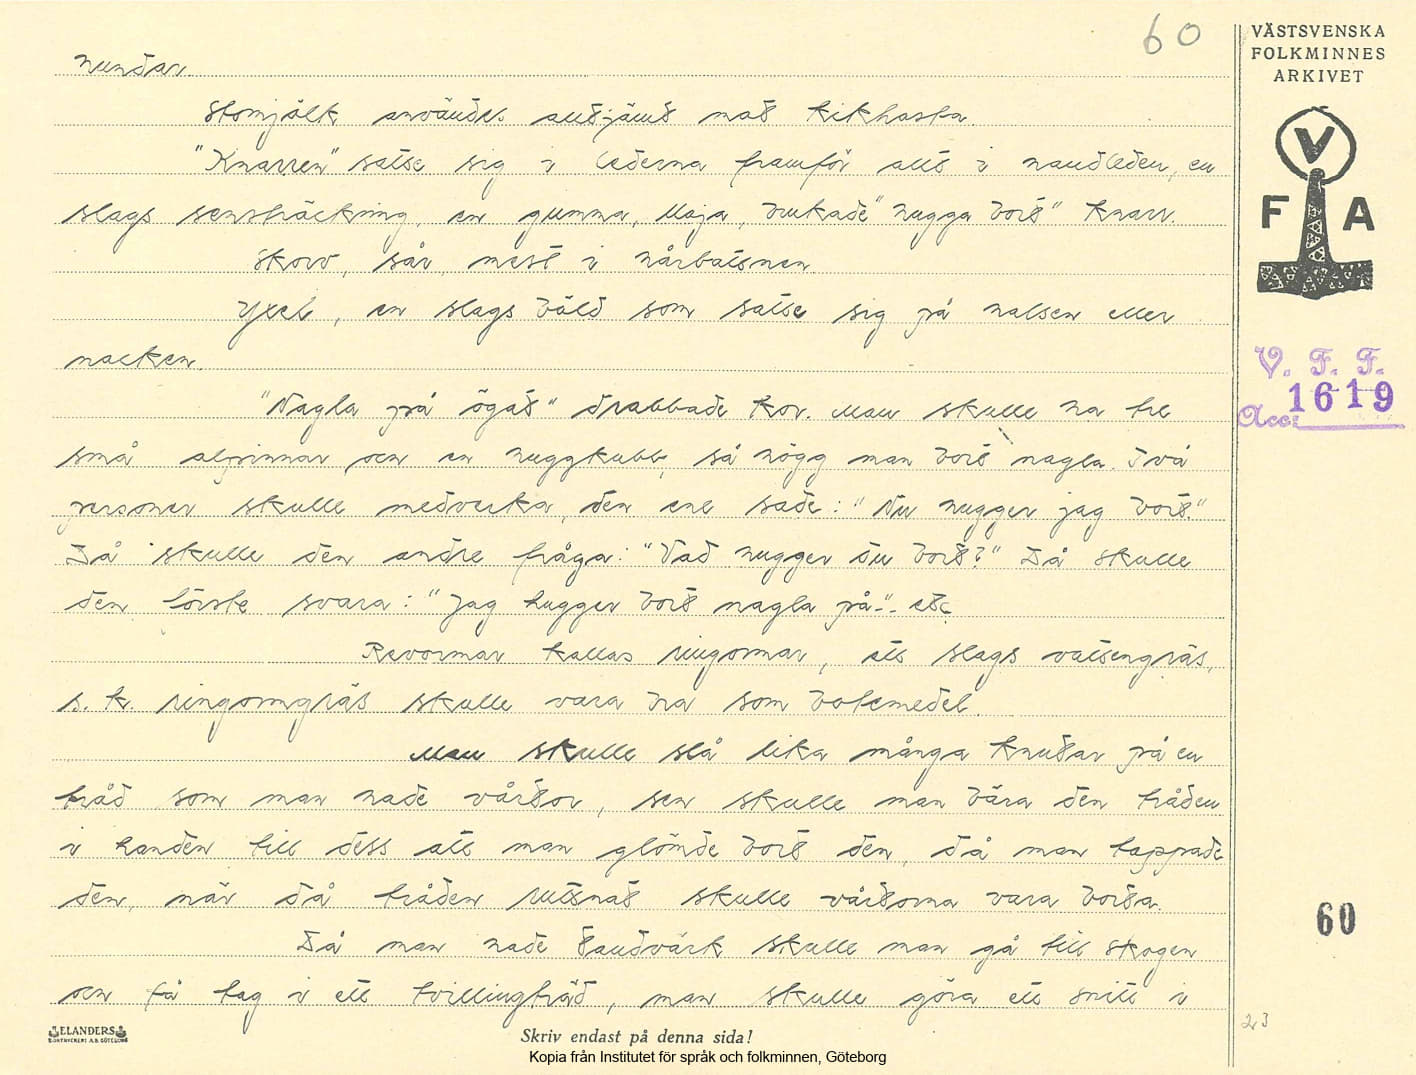 60
hundar.
Stomjölk användes alltjämt mot kikhosta.
"Knarren" satte sig i lederna framför allt i handleden, en
slags sensträckning, en gumma, Maja, brukade "hugga bort" knarr.
Skorv, sår mest i hårbottnen.
Yxel, en slags böld som satte sig på halsen eller
nacken.
"Nagla på ögat" drabbade kor. Man skulle ha tre
små alpinnar och en huggkubb, så högg man bort nagla. Två
personer skulle medverka, den ene sade: "Nu hugger jag bort."
Då skulle den andre fråga: "Vad hugger du bort?" Då skulle
den förste svara: "Jag hugger bort nagla på-". etc
Revormar kallas ringormar, ett slags vattengräs,
s. k. ringormgräs skulle vara bra som botemedel.
Man skulle slå lika många knutar på en
tråd som man hade vårtor, sen skulle man bära den tråden
i handen till dess att man glömde bort den, då man tappade
den, när då tråden ruttnat skulle vårtorna vara borta.
Då man hade tandvärk skulle man gå till skogen
och få tag i ett tvillingträd, man skulle göra ett snitt i
VÄSTSVENSKA
FOLKMINNES
ARKIVET
V
F A
V. F. F.
Acc: 1619
60
23
ELANDERS
BOKTRYCKERI A.B. GÖTEBORG
Skriv endast på denna sida!
Kopia från Institutet för språk och folkminnen, Göteborg